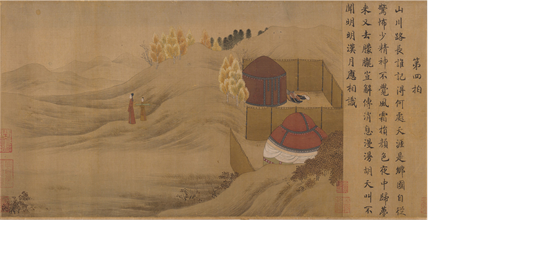 第四拍
山川路長誰記得何處天涯是鄉國自從
驚怖少精神不覺風霜損顏色夜中歸夢
來又去朦朧豈解傳消息漫漫胡天叫不
聞明明漢月應相識